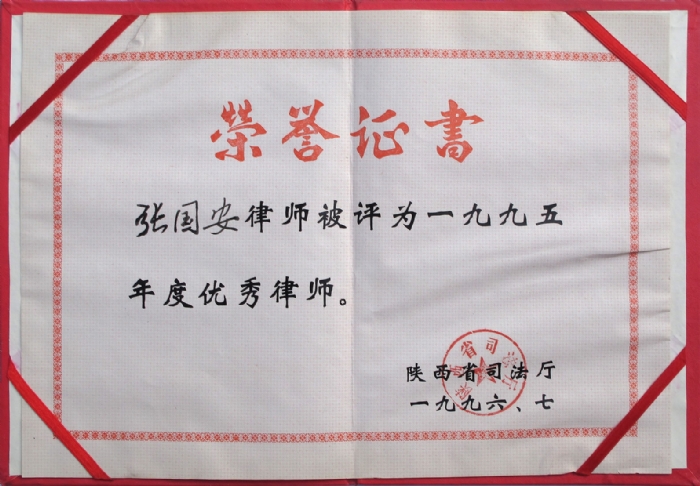 榮誉证書
张国安律师被评为一九九五
年度优秀律师。
陕西省司法厅
一九九六、七
陕西省司法厅